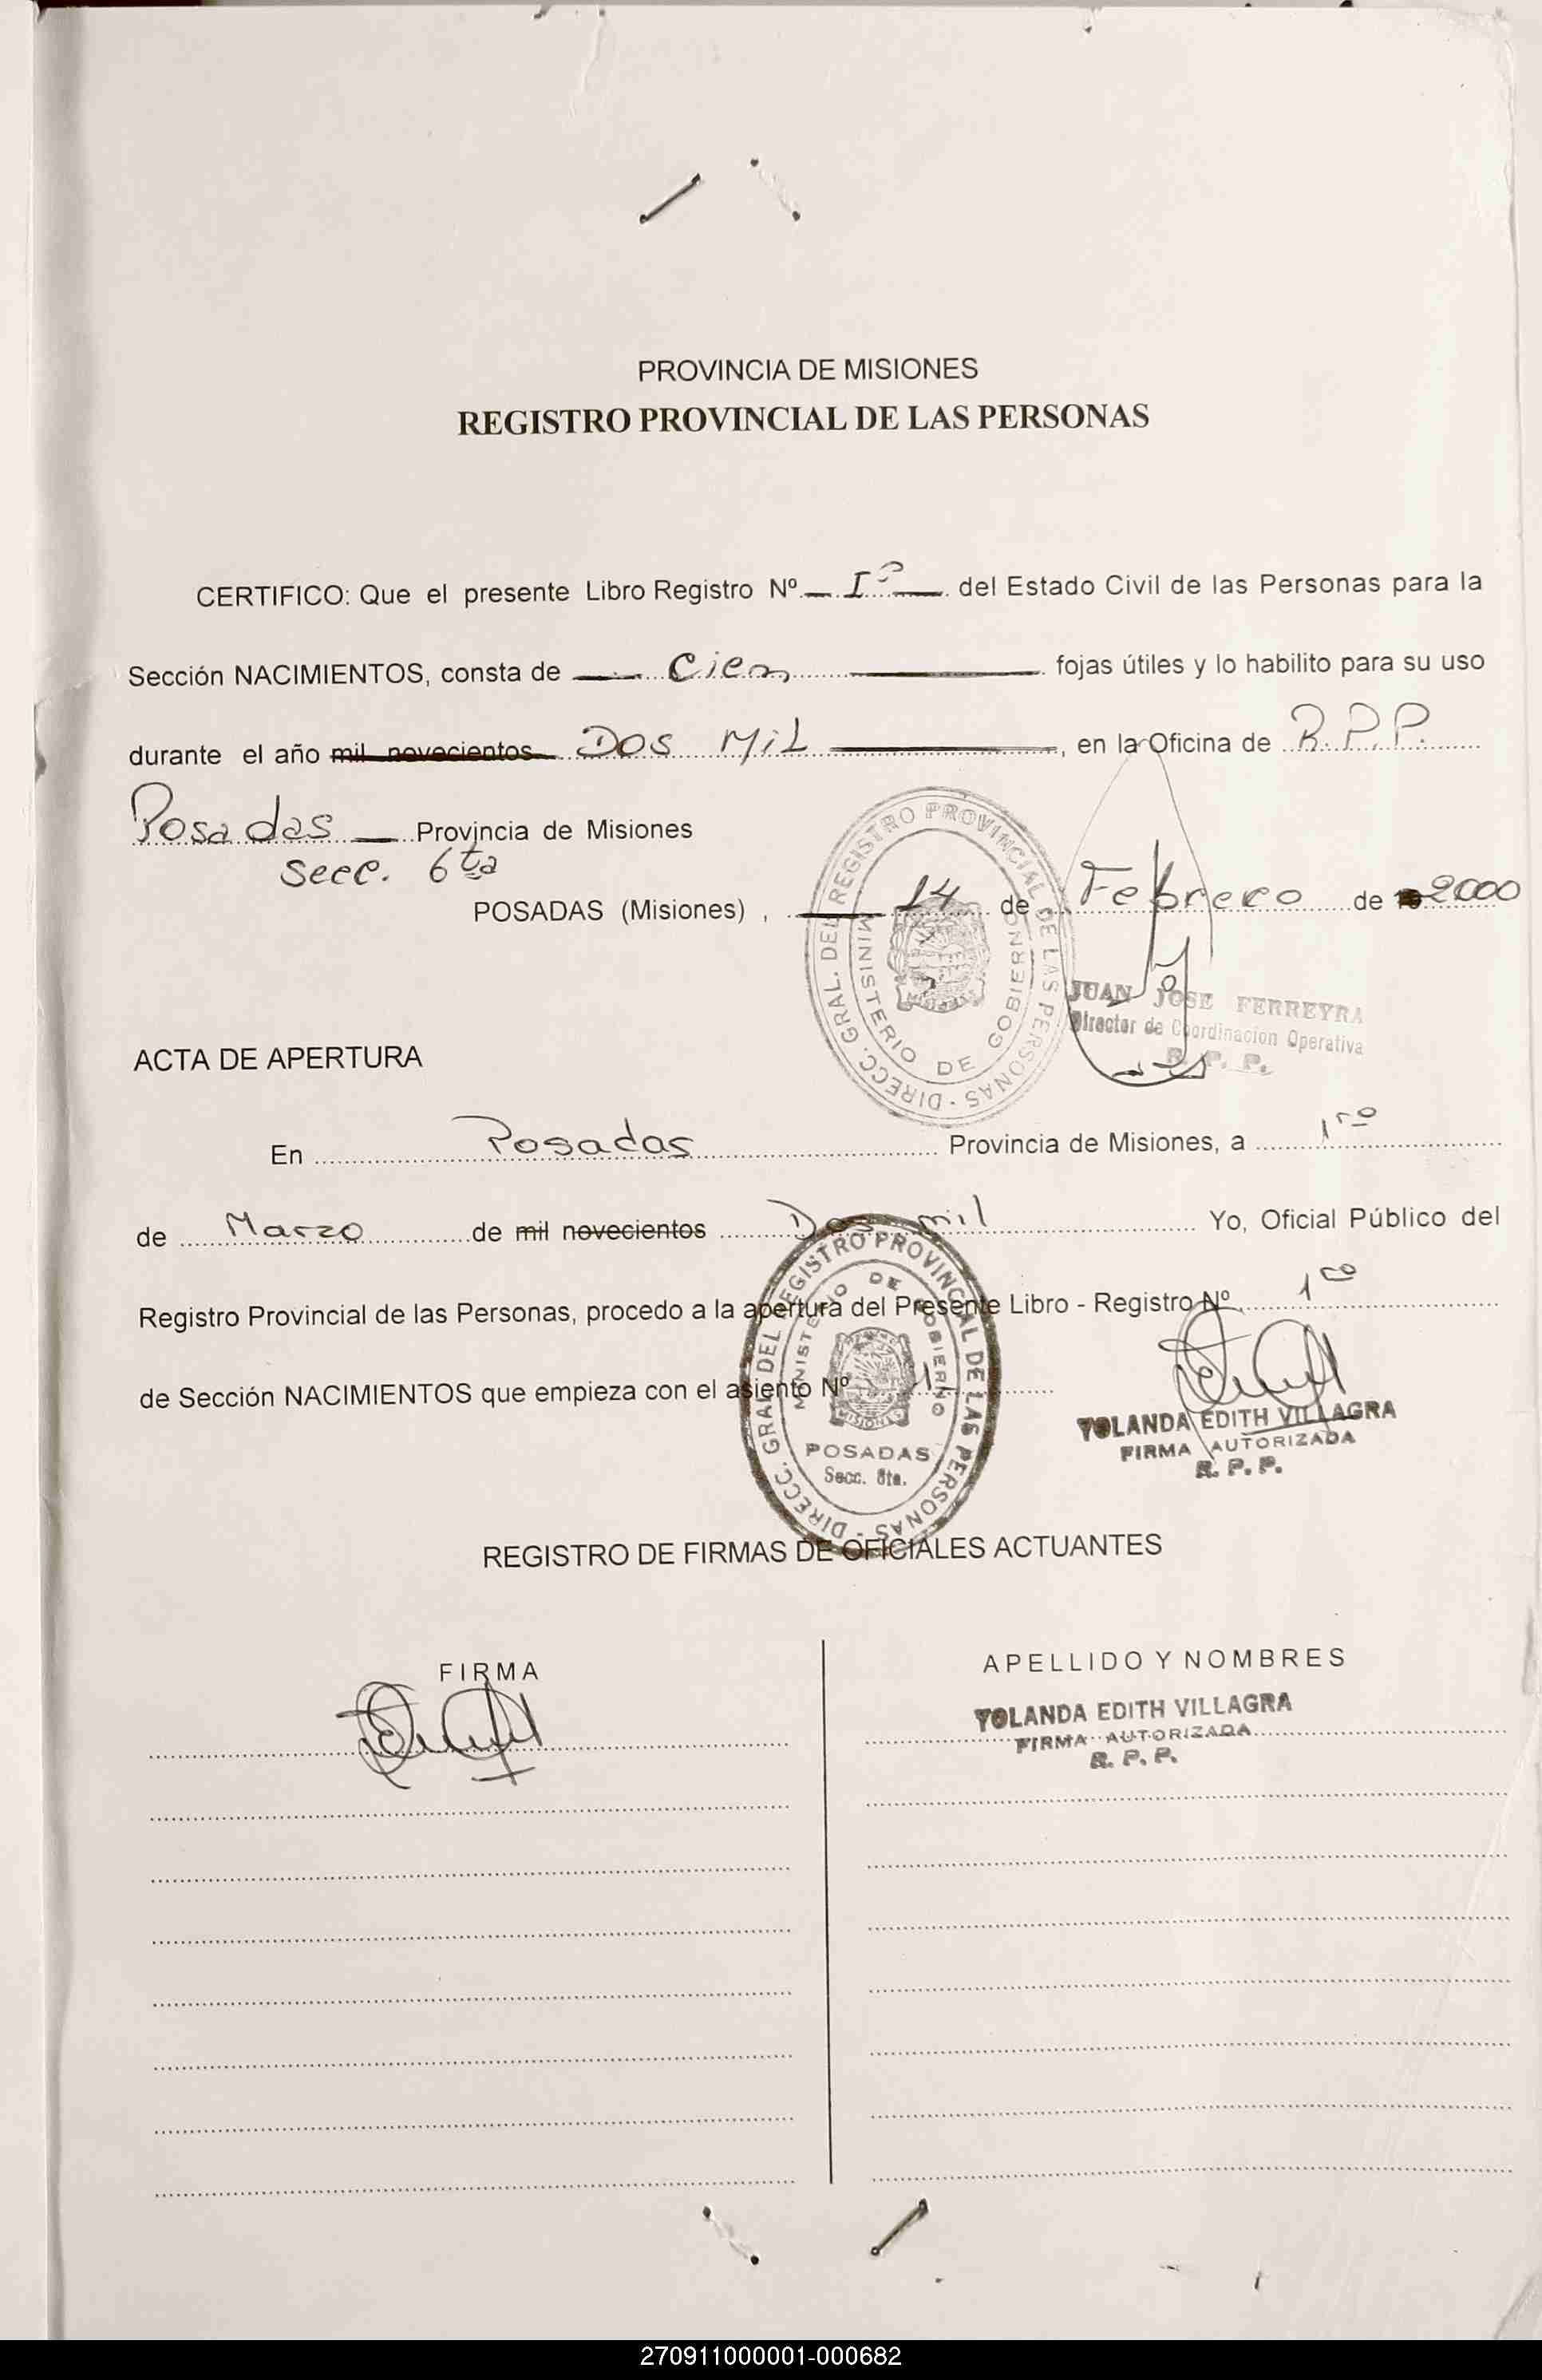 PROVINCIA DE MISIONES
REGISTRO PROVINCIAL DE LAS PERSONAS
CERTIFICO: Que el presente Libro Registro Nº I° del Estado Civil de las Personas para la
Sección NACIMIENTOS, consta de Cien fojas útiles y lo habilito para su uso
durante el año mil novecientos Dos Mil, en la Oficina de R.P.P.
Posadas Provincia de Misiones
Secc. 6ta
POSADAS (Misiones), 14 de Febrero de 2000
DIRECC. GRAL. DEL REGISTRO PROVINCIAL DE LAS PERSONAS -
MINISTERIO DE GOBIERNO
JUAN JOSE FERREYRA
Director de Coordinacion Operativa
R. P. P.
ACTA DE APERTURA
En Posadas Provincia de Misiones, a 1ro
de Marzo de mil novecientos Dos mil Yo, Oficial Público del
Registro Provincial de las Personas, procedo a la apertura del Presente Libro - Registro Nº 1ro
de Sección NACIMIENTOS que empieza con el asiento Nº 1
DIRECC. GRAL. DEL REGISTRO PROVINCIAL DE LAS PERSONAS -
MINISTERIO DE GOBIERNO
MISIONES
POSADAS
Secc. 6ta.
YOLANDA EDITH VILLAGRA
FIRMA AUTORIZADA
R. P. P.
REGISTRO DE FIRMAS DE OFICIALES ACTUANTES
FIRMA
APELLIDO Y NOMBRES
YOLANDA EDITH VILLAGRA
FIRMA AUTORIZADA
R. P. P.
270911000001-000682